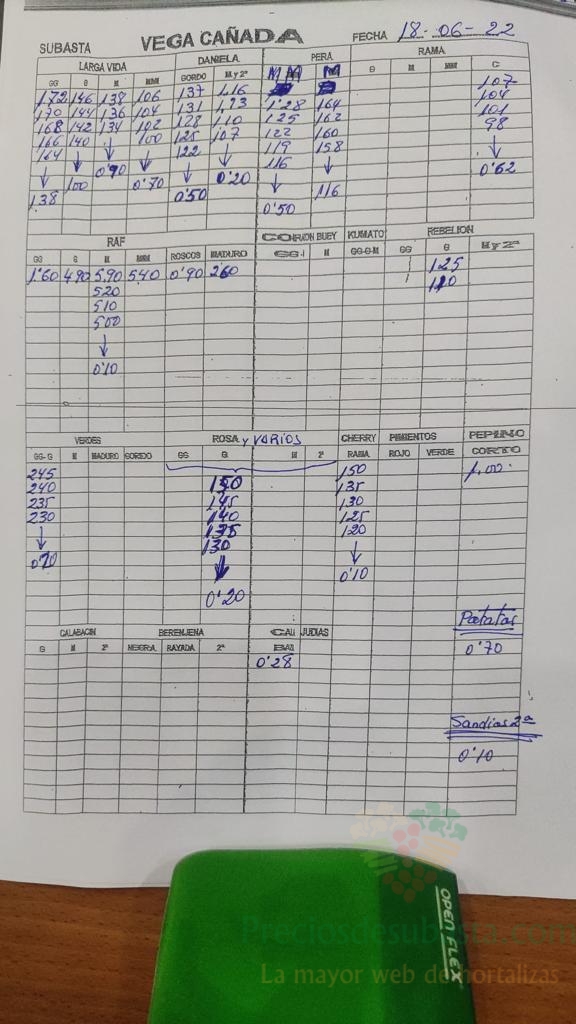 SUBASTA VEGA CAÑADA FECHA 18-06-22
LARGA VIDA DANIELA PERA RAMA
GG G M MMM GORDO M y 2ª M M M G M MMM C
172 146 138 106 137 1,16 107
170 144 136 104 131 1,13 1'28 164 104
168 142 134 102 128 110 125 162 101
166 140 100 125 107 122 160 98
164 122 119 158
0'90 116 0'62
100 0'70 0'20
138 0'50 116
0'50
RAF CORAZON BUEY KUMATO REBELION
GG G M MMM ROSCOS MADURO GG-G M GG-G-M GG G M y 2ª
1'60 490 590 540 0'90 260 125
520 120
510
500
0'10
VERDES ROSA y VARIOS CHERRY PIMIENTOS PEPINO
GG-G M MADURO GORDO GG G M 2ª RAMA ROJO VERDE CORTO
245 150 150 1,00
240 145 135
235 140 130
230 135 125
130 120
0'70
0'10
0'20
Patatas
CALABACIN BERENJENA JUDIAS
G M 2ª NEGRA RAYADA 2ª 0'70
0'28
Sandias 2ª
0'10
OPEN FLEX
Preciosdesubasta.com
La mayor web de hortalizas